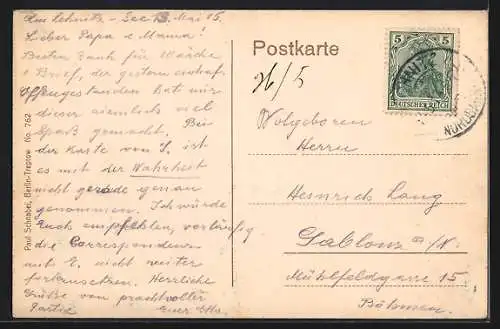 Am Lehnitz-See 13. Mai 05.
Lieber Papa & Mama!
Besten Dank für Wäsche
& Brief, der gestern eintraf.
Offengestanden hat mir
dieser ziemlich viel
Spaß gemacht. Bei
der Karte von J. ist
es mit der Wahrheit
nicht gerade genau
genommen. Ich würde
Euch empfehlen, vorläufig
die Correspondenz
mit E. nicht weiter
fortzusetzen. Herrliche
Grüße von prachtvoller
Partie Euer
Paul Schnabel, Berlin-Treptow No. 762
Postkarte
26/5
5 5
DEUTSCHES REICH
Wolgeboren
Herrn
Heinrich Lang
Gablonz a/N.
Mühlfeldgasse 15
Böhmen.